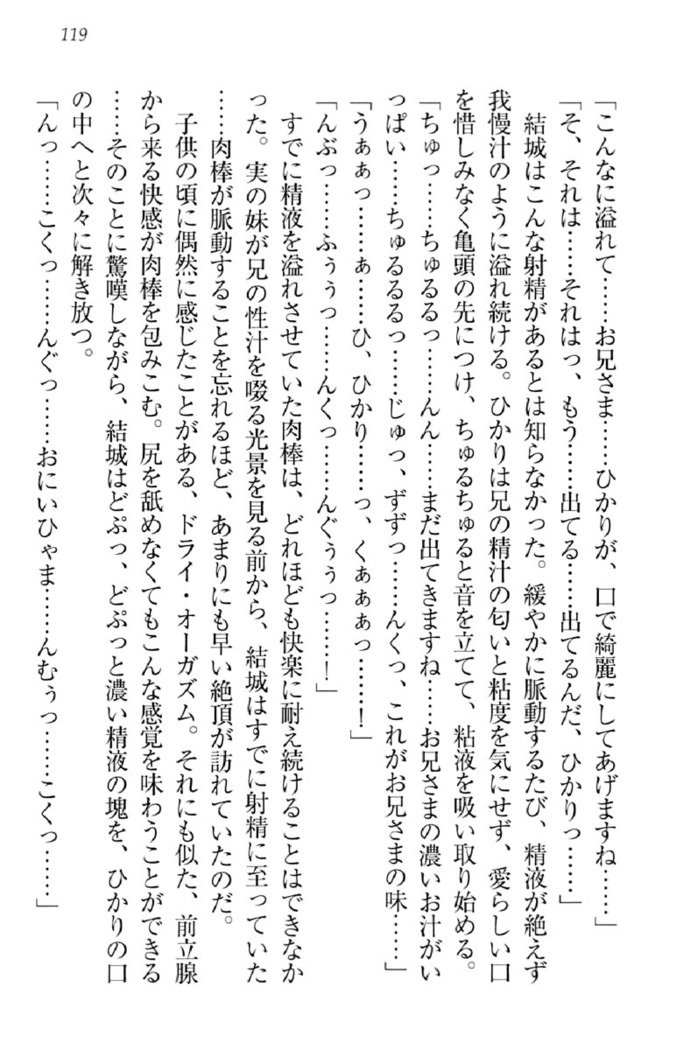 119
「こんなに溢れて……お兄さま……ひかりが、口で綺麗にしてあげますね……」
「そ、それは……それはっ、もう……出てる……出てるんだ、ひかりっ……」
結城はこんな射精があるとは知らなかった。緩やかに脈動するたび、精液が絶えず
我慢汁のように溢れ続ける。ひかりは兄の精汁の匂いと粘度を気にせず、愛らしい口
を惜しみなく亀頭の先につけ、ちゅるちゅると音を立てて、粘液を吸い取り始める。
「ちゅっ……ちゅるるっ……んん……まだ出てきますね……お兄さまの濃いお汁がい
っぱい……ちゅるるるっ……じゅっ、ずずっ……んくっ、これがお兄さまの味……」
「うぁぁっ……ぁ……ひ、ひかり……っ、くぁぁぁっ……！」
「んぶっ……ふぅぅっ……んくっ……んぐぅぅっ……！」
すでに精液を溢れさせていた肉棒は、どれほども快楽に耐え続けることはできなか
った。実の妹が兄の性汁を啜る光景を見る前から、結城はすでに射精に至っていた
……肉棒が脈動することを忘れるほど、あまりにも早い絶頂が訪れていたのだ。
子供の頃に偶然に感じたことがある、ドライ・オーガズム。それにも似た、前立腺
から来る快感が肉棒を包みこむ。尻を舐めなくてもこんな感覚を味わうことができる
……そのことに驚嘆しながら、結城はどぷっ、どぷっと濃い精液の塊を、ひかりの口
の中へと次々に解き放つ。
「んっ……こくっ……んぐっ……おにいひゃま……んむぅっ……こくっ……」